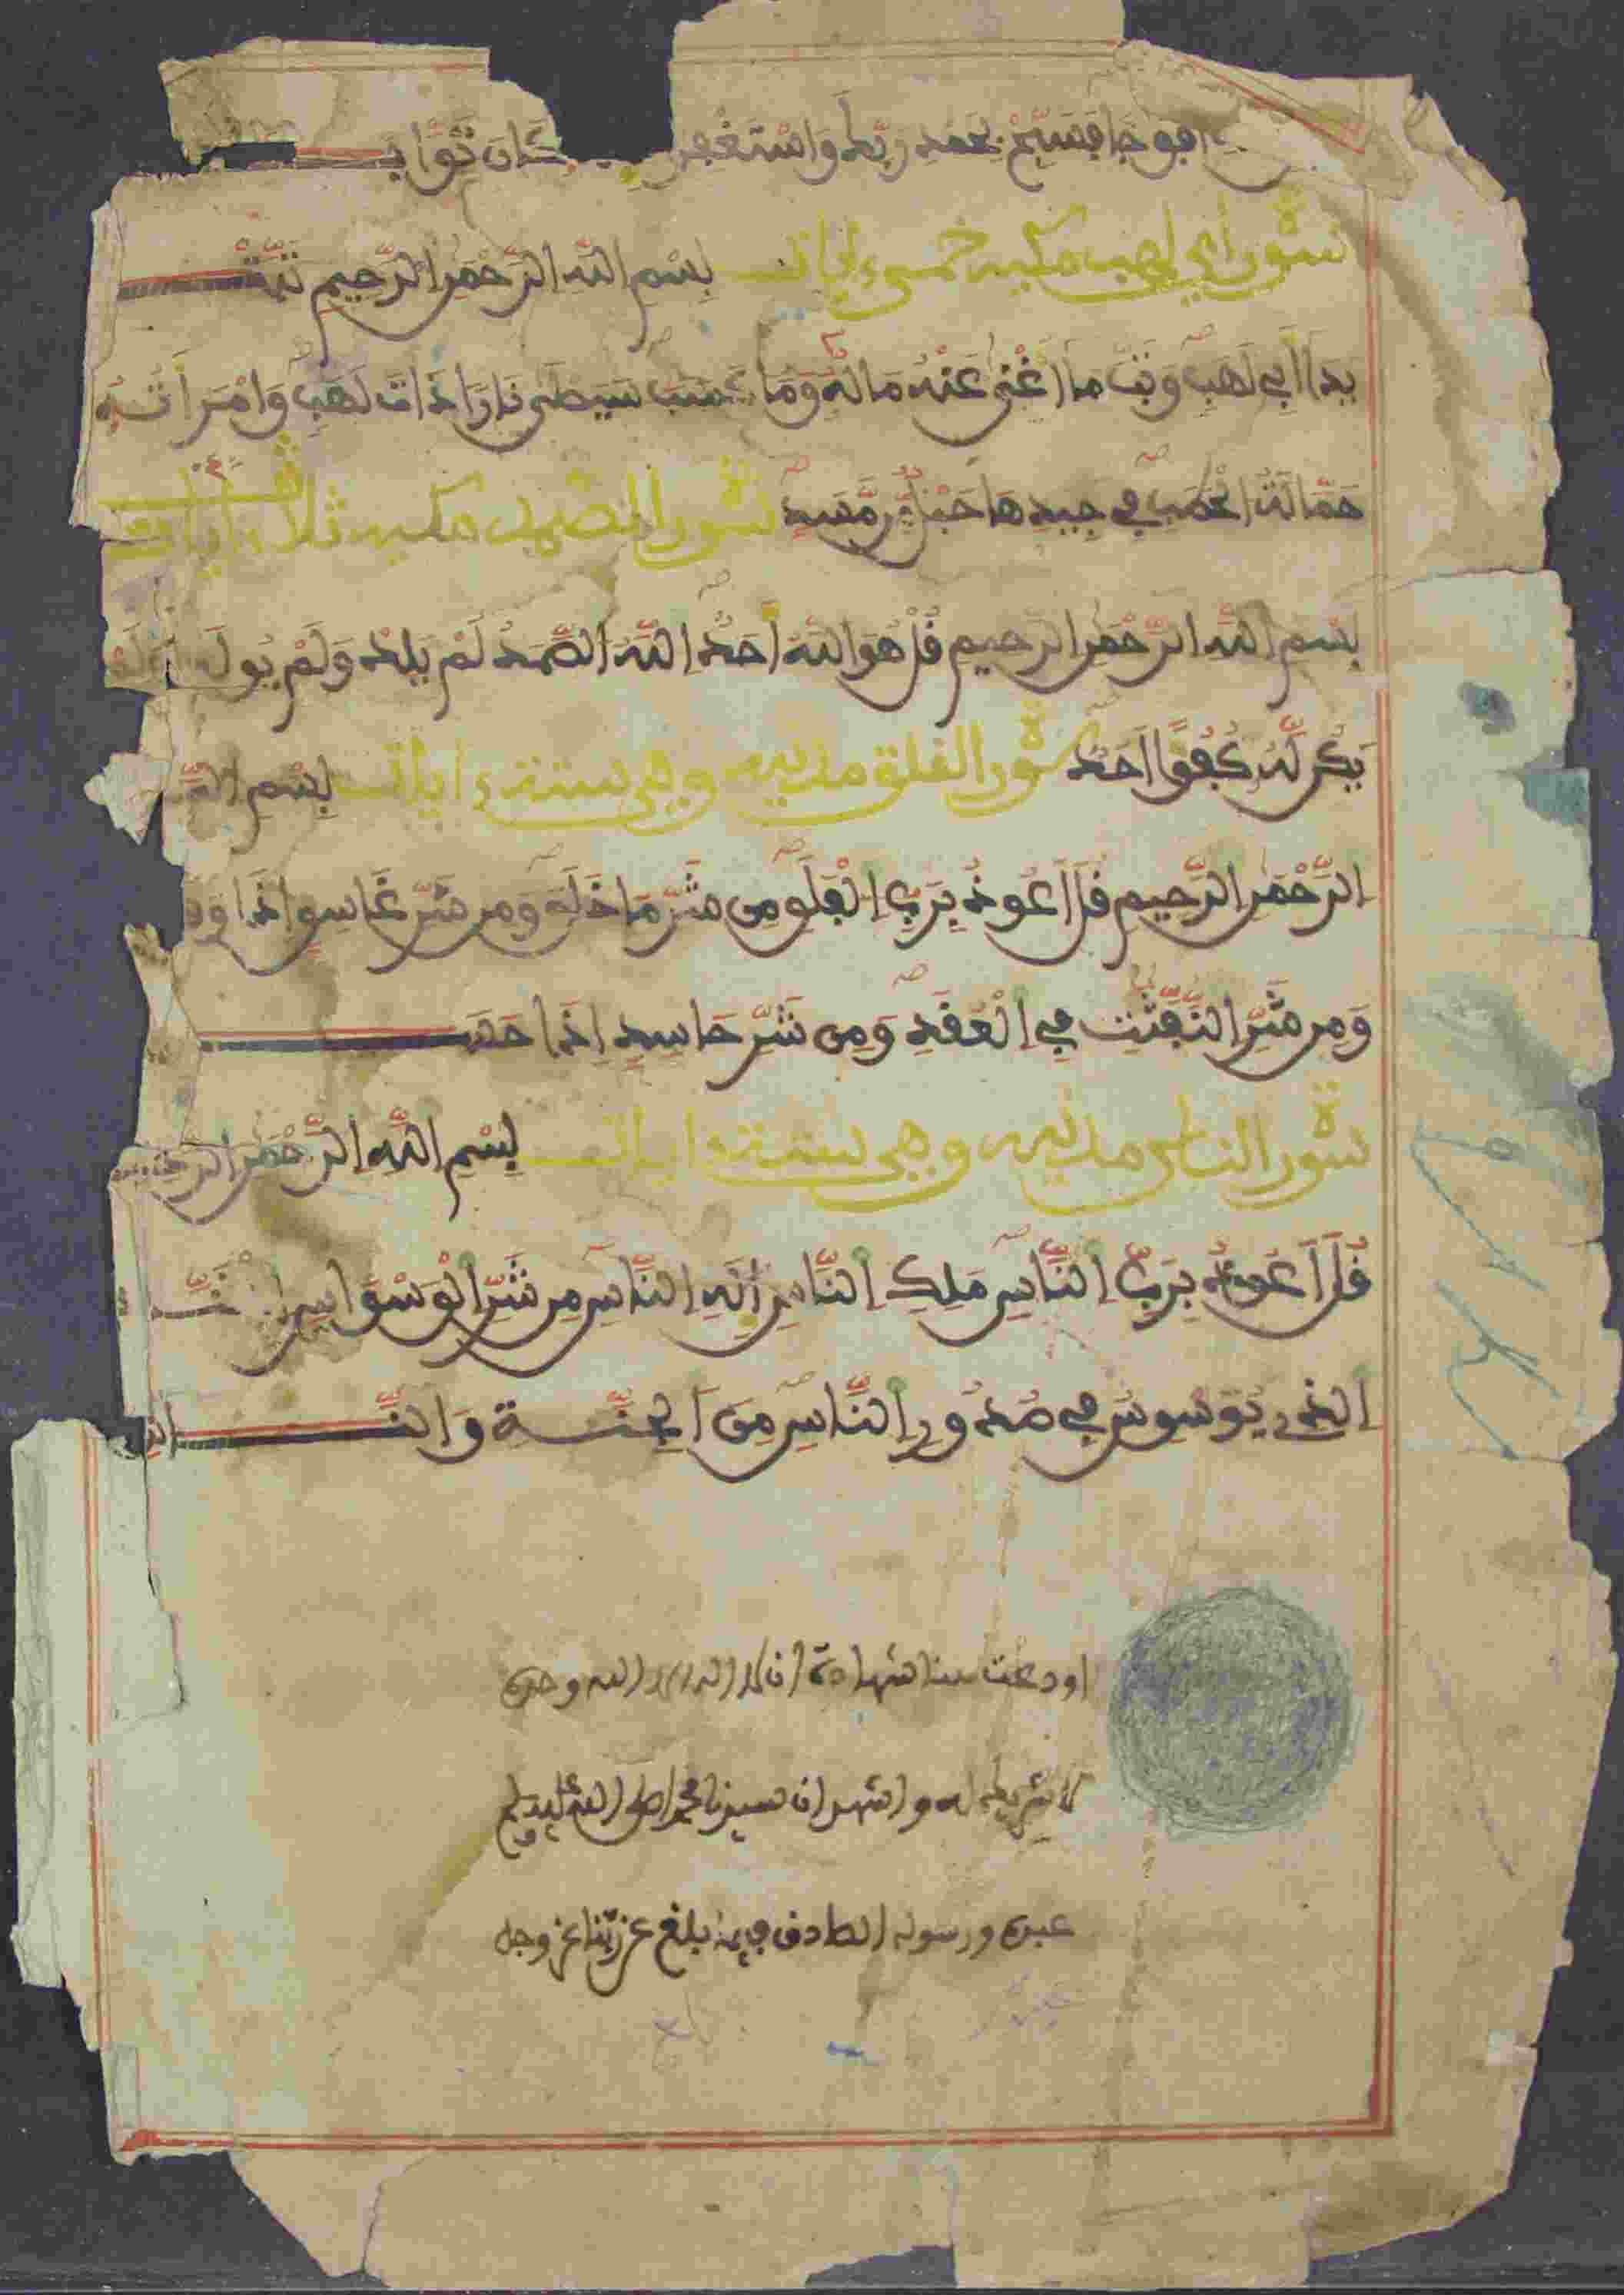 افواجا فسبح بحمد ربك واستغفر كان توابا
سورة أبي لهب مكية خمس ءايات بسم الله الرحمن الرحيم تبت
يدا أبي لهب وتب ما أغنى عنه ماله وما كسب سيصلى نارا ذات لهب وامرأته
حمالة الحطب في جيدها حبل من مسد سورة الصمد مكية ثلاث ءايات
بسم الله الرحمن الرحيم قل هو الله أحد الله الصمد لم يلد ولم يولد ولم
يكن له كفؤا أحد سورة الفلق مدنية وهي ستة ءايات بسم الله
الرحمن الرحيم قل أعوذ برب الفلق من شر ما خلق ومن شر غاسق إذا وقب
ومن شر النفثت في العقد ومن شر حاسد إذا حسد
سورة الناس مدنية وهي ستة ءايات بسم الله الرحمن الرحيم
قل أعوذ برب الناس ملك الناس إله الناس من شر الوسواس الخنـ
الذي يوسوس في صدور الناس من الجنة والنـــاس
اودعت هنا شهادة ان لا اله الا الله وحده
لا شريك له واشهد ان سيدنا محمدا صلى الله عليه وسلم
عبده ورسوله الصادق فيما بلغ عن ربنا عز وجل